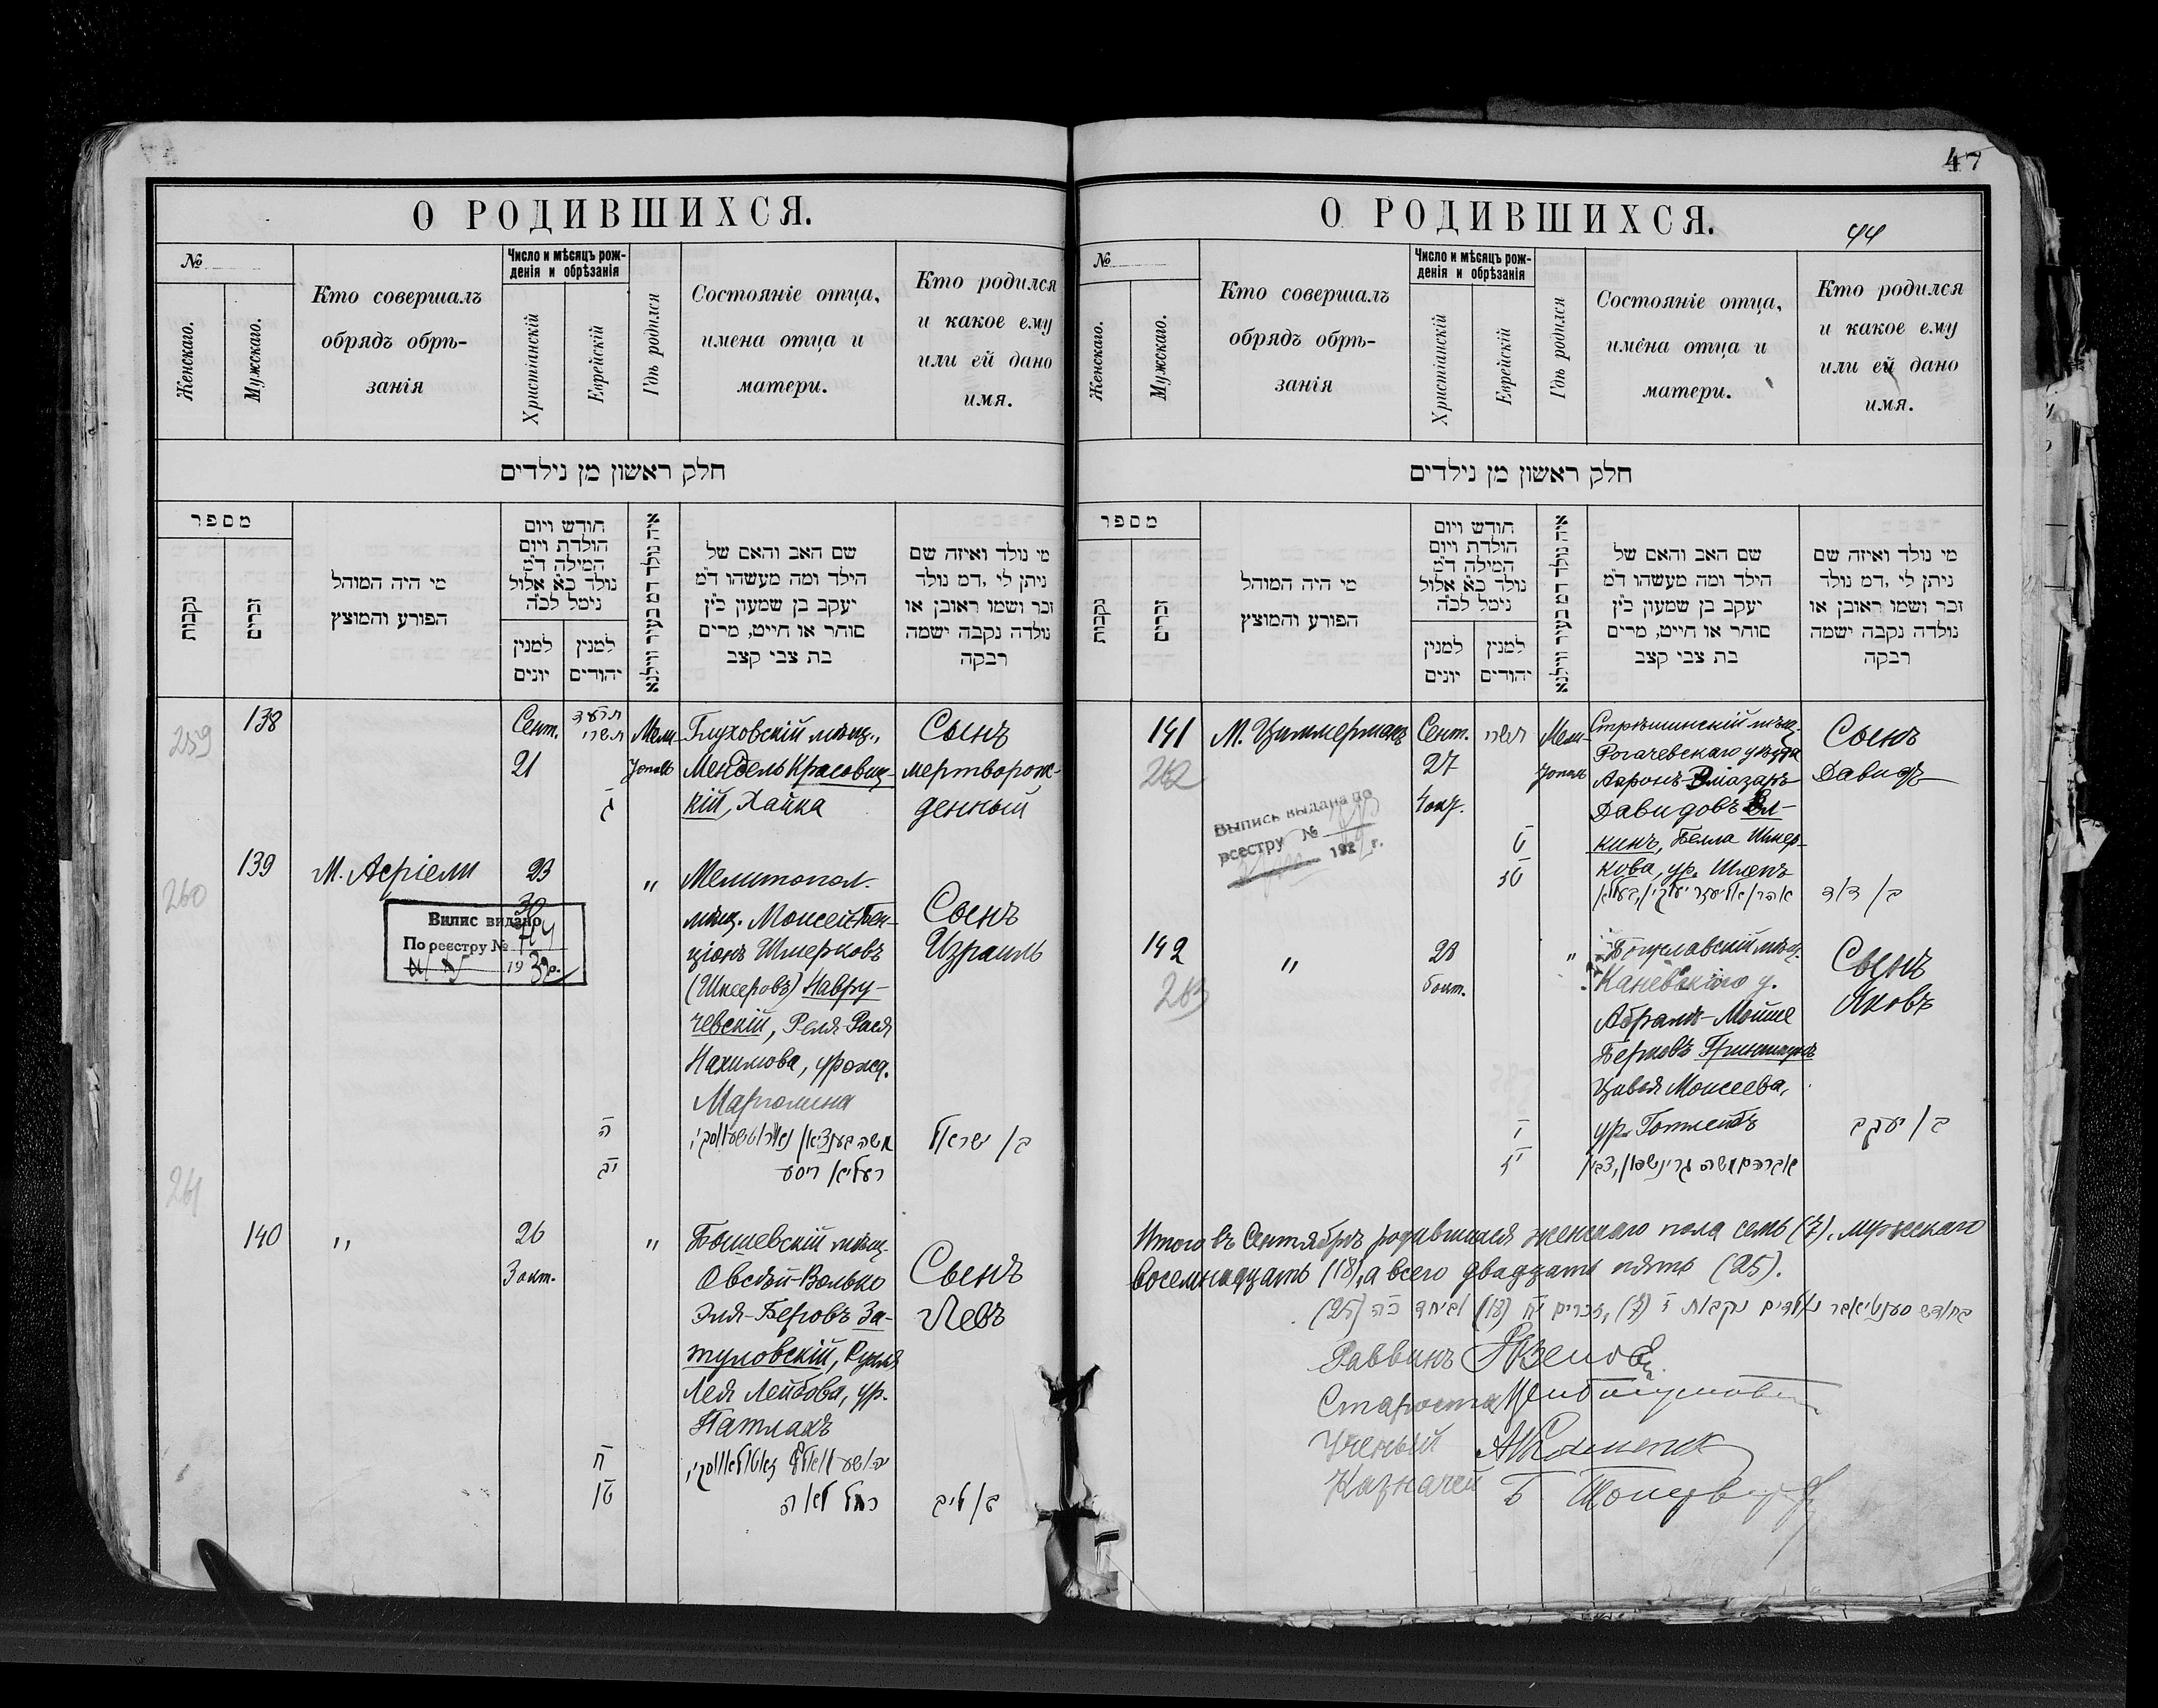 47
О РОДИВШИХСЯ.
№
Женскаго.
Мужскаго.
Кто совершалъ
обрядъ обрѣ-
занія
Число и мѣсяцъ рож-
денія и обрѣзанія
Христіанскій
Еврейскій
Гдѣ родился
Состояніе отца,
имена отца и
матери.
Кто родился
и какое ему
или ей дано
имя.
חלק ראשון מן נילדים
מספר
נקבות
זכרים
מי היה המוהל
הפורע והמוצץ
חודש ויום
הולדת ויום
המילה ד״מ
נולד כ״א אלול
נימל לכ״ה
למנין
יונים
למנין
יהודים
איה נולד דם בעיר ווילנא
שם האב והאם של
הילד ומה מעשהו ד״מ
יעקב בן שמעון כ״ץ
סוחר או חייט, מרים
בת צבי קצב
מי נולד ואיזה שם
ניתן לי, דמ נולד
זכר ושמו ראובן או
נולדה נקבה ישמה
רבקה
259
138
Сент.
21
תרע״ד
תשרי
ג
Мели-
тополь
Глуховскій мѣщ.,
Мендель Красовиц-
кій, Хайка
Сынъ
мертворож-
денный
260
139
М. Асріели
23
30
"
Мелитопол.
мѣщ. Моисей-Бен-
ціонъ Шмерковъ
(Шмеровъ) Навру-
чевскій, Реля-Рася
Нахимова, урожд.
Марголина
Сынъ
Израиль
Випис видано
По реєстру №
19
ה
יב
בן ישראל
261
140
"
26
3 окт.
"
Бошевскій мѣщ.
Овсѣй-Волько
Эля-Беровъ За-
туловскій, Рухля
Лея Лейбова, ур.
Патлахъ
Сынъ
Левъ
ח
טו
רחל לאה
בן ליב
О РОДИВШИХСЯ.
44
№
Женскаго.
Мужскаго.
Кто совершалъ
обрядъ обрѣ-
занія
Число и мѣсяцъ рож-
денія и обрѣзанія
Христіанскій
Еврейскій
Гдѣ родился
Состояніе отца,
имена отца и
матери.
Кто родился
и какое ему
или ей дано
имя.
חלק ראשון מן נילדים
מספר
נקבות
זכרים
מי היה המוהל
הפורע והמוצץ
חודש ויום
הולדת ויום
המילה ד״מ
נולד כ״א אלול
נימל לכ״ה
למנין
יונים
למנין
יהודים
איה נולד דם בעיר ווילנא
שם האב והאם של
הילד ומה מעשהו ד״מ
יעקב בן שמעון כ״ץ
סוחר או חייט, מרים
בת צבי קצב
מי נולד ואיזה שם
ניתן לי, דמ נולד
זכר ושמו ראובן או
נולדה נקבה ישמה
רבקה
141
262
М. Циммерманъ
Сент.
27
4 окт.
תשרי
ט
טז
Мели-
тополь
Стрѣшинскій мѣщ.
Рогачевскаго уѣзда
Ааронъ-Эліазаръ
Давидовъ Эл-
кинъ, Белла Шмер-
кова, ур. Шленъ
Сынъ
Давидъ
בן דוד
Выпись выдана по
реестру №
192 г.
142
263
"
28
5 окт.
"
Богуславскій мѣщ.
Каневскаго у.
Абрамъ-Мойше
Берковъ Гриншпунъ
Цивья Моисеева,
ур. Готлибъ
Сынъ
Яковъ
י
יז
אברהם משה גרינשפון, צביה
בן יעקב
Итого въ Сентябрѣ родившихся женскаго пола семь (7), мужескаго
восемнадцать (18), а всего двадцать пять (25).
בחודש סענטיאבר נולדים נקבות ז (7), זכרים יח (18) וביחד כה (25)
Раввинъ
Староста
Ученый
Казначей